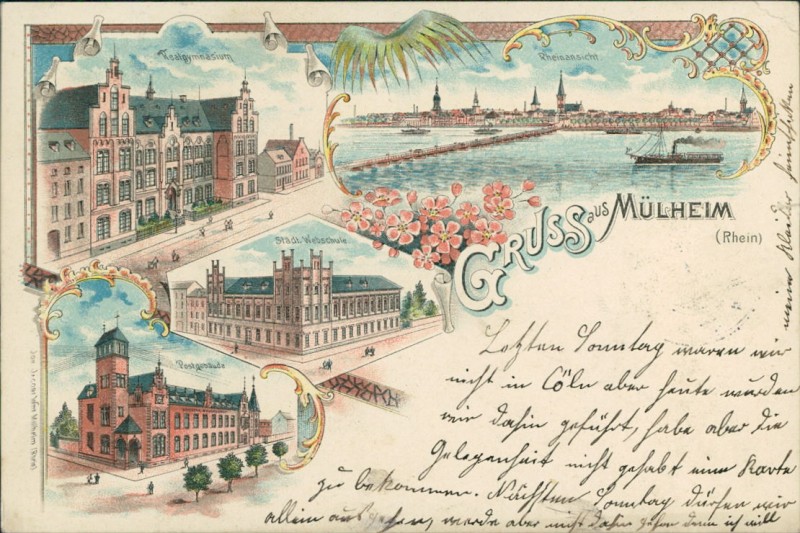 Realgymnasium
Rheinansicht
GRUSS aus MÜLHEIM
(Rhein)
Städt. Webschule
Postgebäude
Letzten Sonntag waren wir
nicht in Cöln aber heute wurden
wir dahin geführt, habe aber die
Gelegenheit nicht gehabt eine Karte
zu bekommen. Nächsten Sonntag dürfen wir
allein ausgehen, werde aber nicht dahin gehen denn ich will
meine Kleider heimschicken